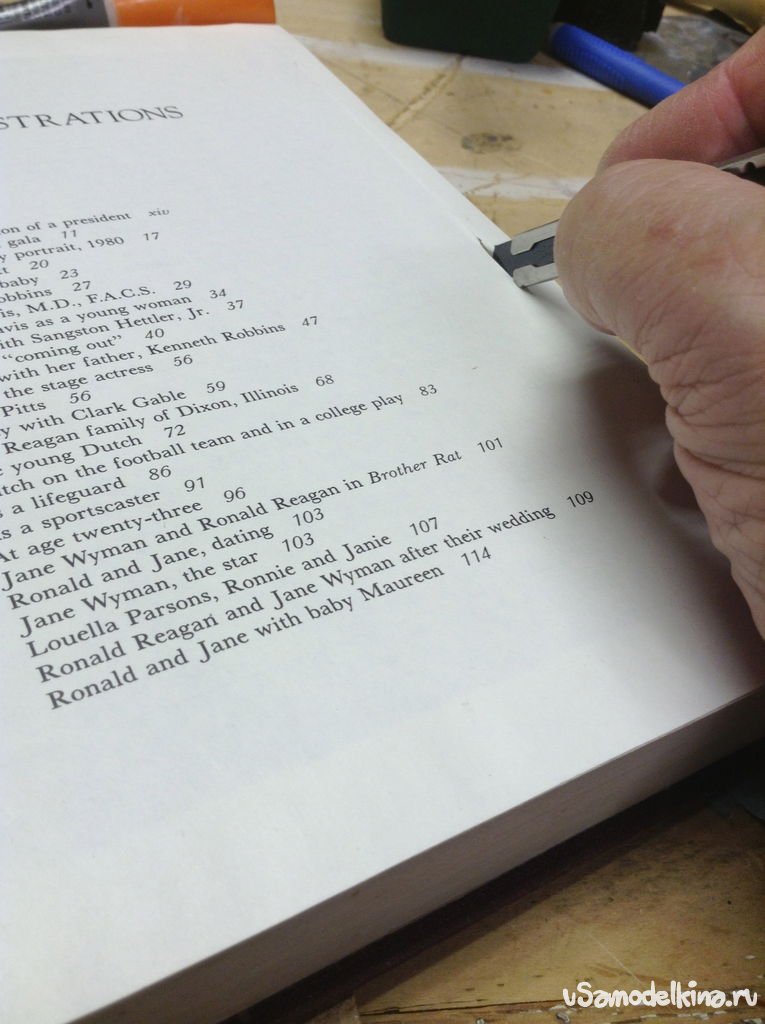 STRATIONS
on of a president xiv
gala 11
y portrait, 1980 17
t 20
baby 23
obbins 27
is, M.D., F.A.C.S. 29
avis as a young woman 34
ith Sangston Hettler, Jr. 37
"coming out" 40
with her father, Kenneth Robbins 47
the stage actress 56
Pitts 56
y with Clark Gable 59
Reagan family of Dixon, Illinois 68
e young Dutch 72
utch on the football team and in a college play 83
s a lifeguard 86
s a sportscaster 91
At age twenty-three 96
Jane Wyman and Ronald Reagan in Brother Rat 101
Ronald and Jane, dating 103
Jane Wyman, the star 103
Louella Parsons, Ronnie and Janie 107
Ronald Reagan and Jane Wyman after their wedding 109
Ronald and Jane with baby Maureen 114
uSamodelkina.ru